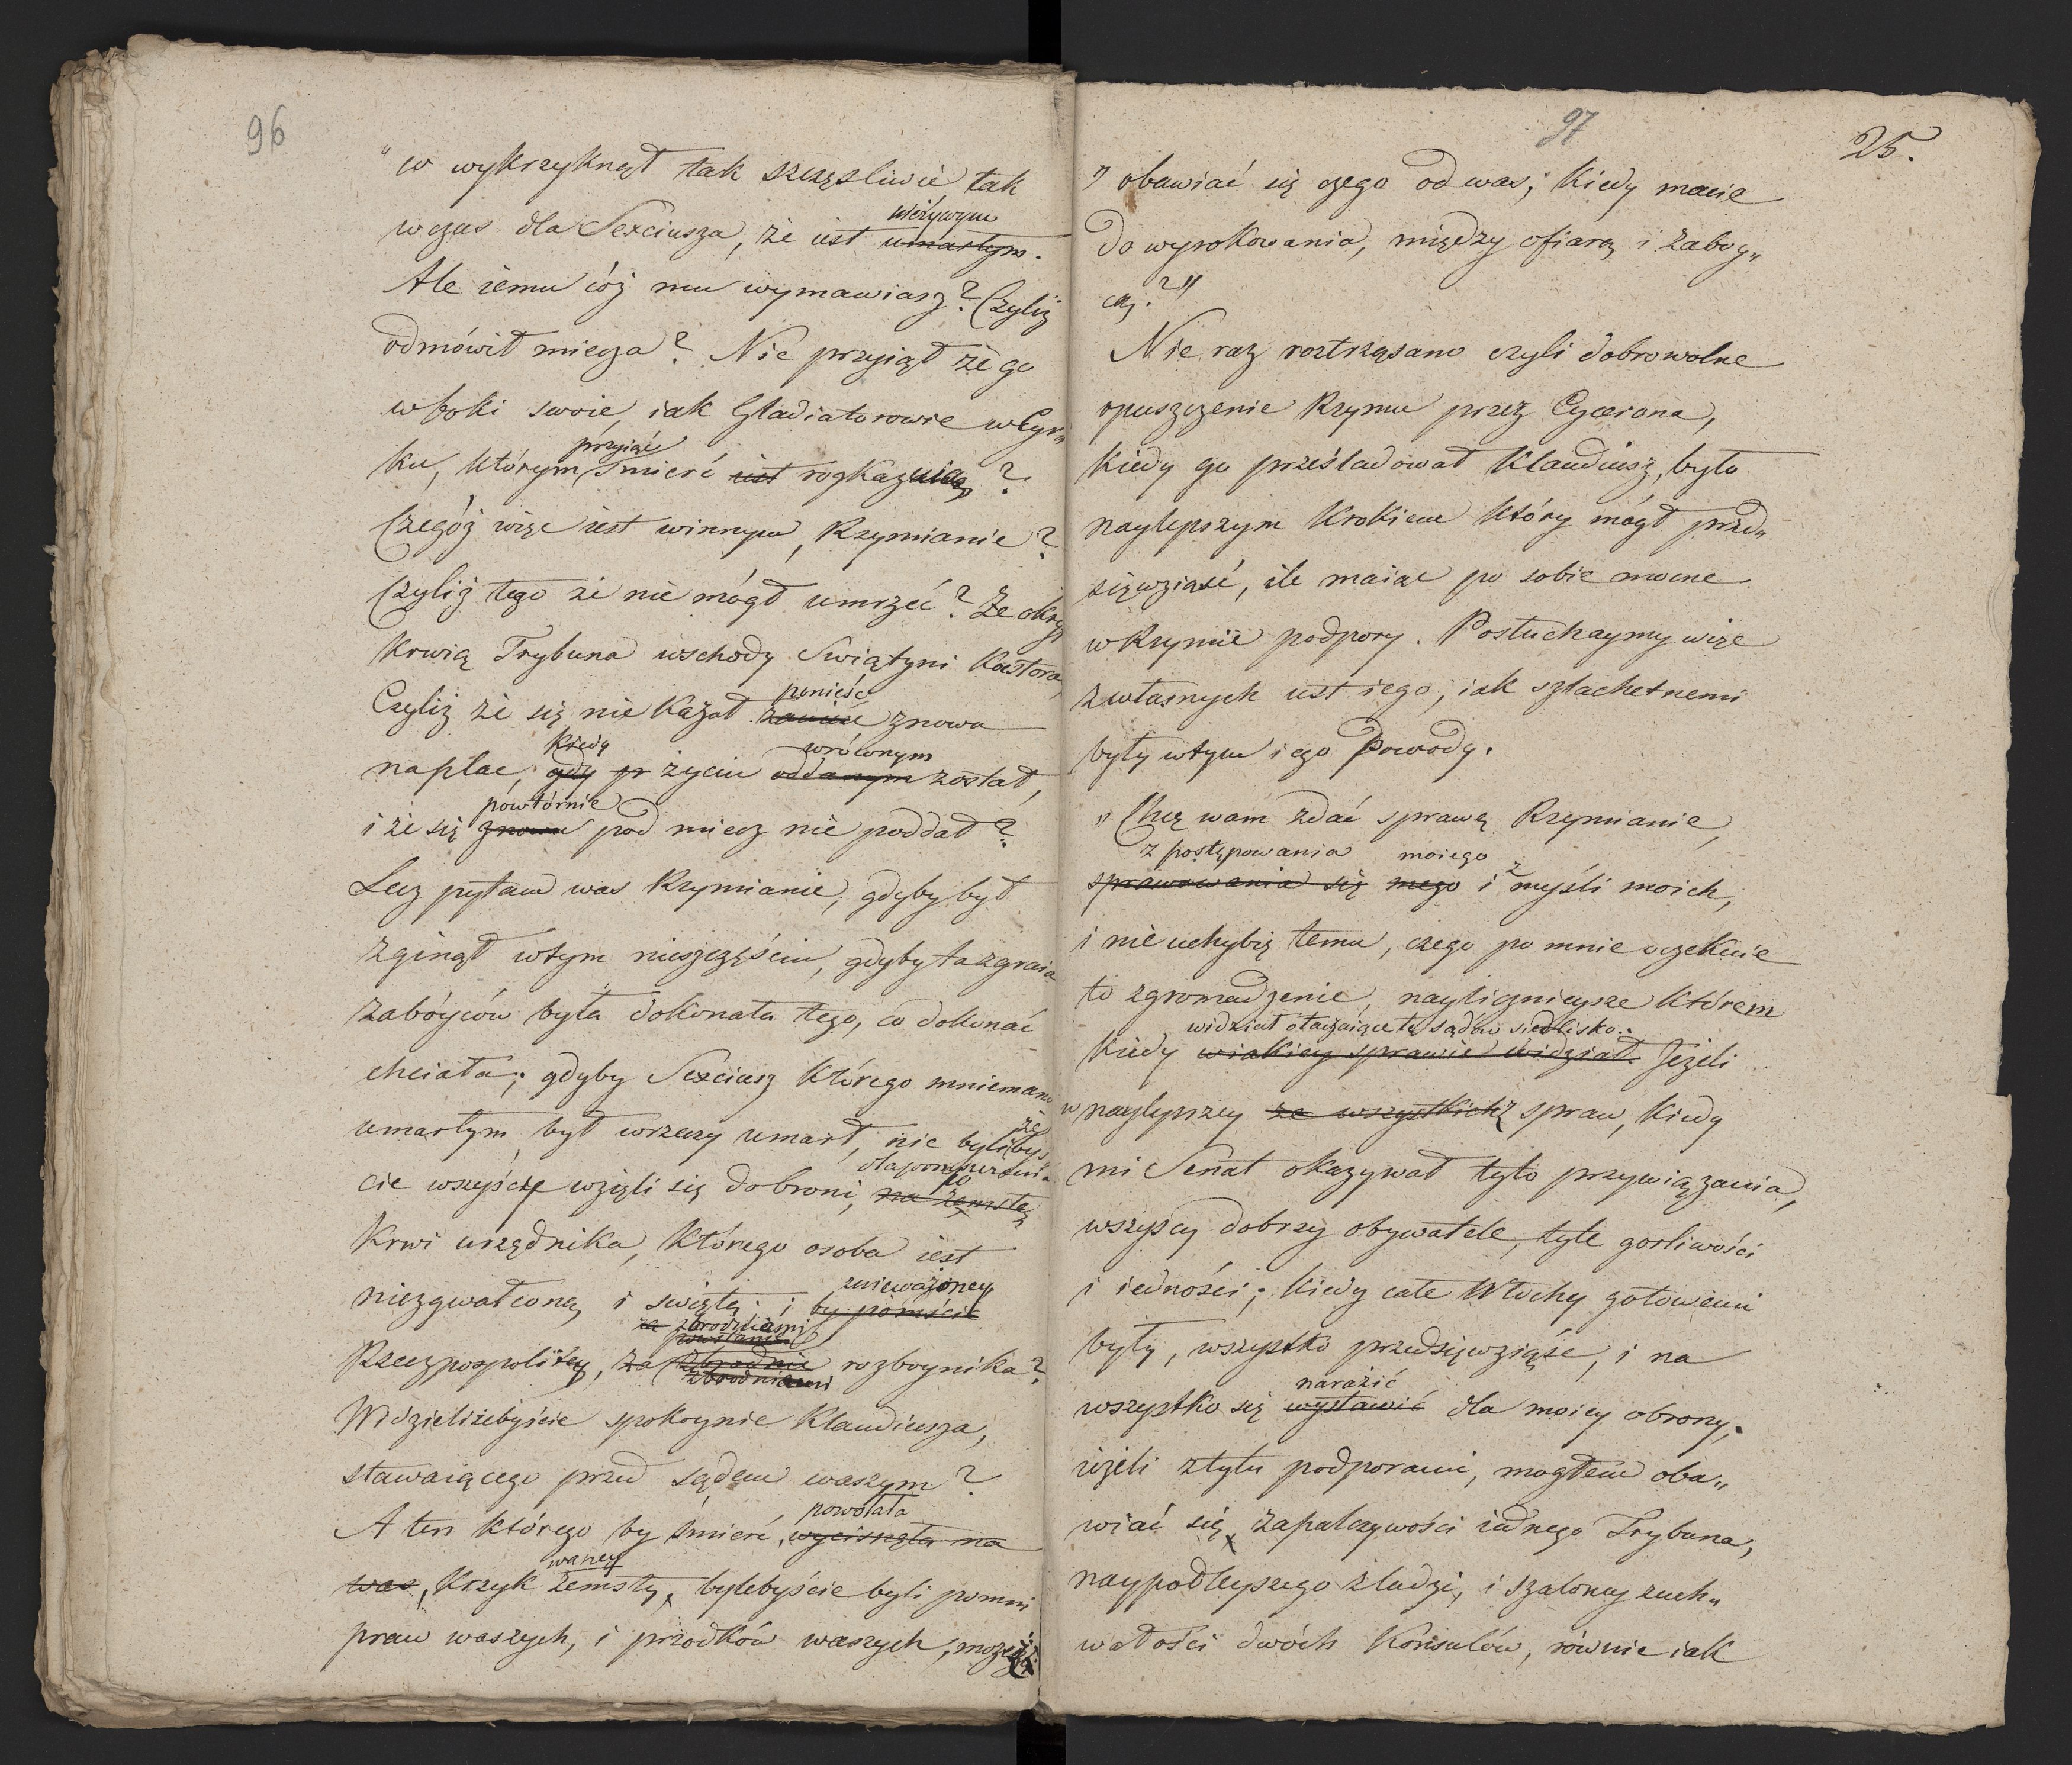 96
" w wykrzyknął tak szczęsliwie tak
wczas dla Sexciusza, że iest umarłym.
nieżywym
Ale iemu cóż mu wymawiasz? Czyliż
odmówił miecza? Nie przyiął że go
w boki swoie, iak Gladiatorowie w Cyr„
ku, którym śmierć iest rozkazuią?
przyiąć
Czegóż więc iest winnym, Rzymianie?
Czyliż tego że nie mógł umrzeć? Że okrył
krwią Trybuna wschody Swiątyni Kastora,
Czyliż że się nie kazał zanieść znowu
ponieść
na plac, gdy pr życiu oddanym został,
kiedy wrównym
i że się znowu pod miecz nie poddał?
powtórnie
Lecz pytam was Rzymianie, gdyby był
zginął w tym nieszczęściu, gdyby ta zgraia
zabóyców była dokonała tego, co dokonać
chciała; gdyby Sexciusz którego mniemano
umarłym, był wrzeczy umarł, nie byliżbyś
że
cie wszyścy wzięli się do broni, na zemstę
dla pomszczenia
krwi urzędnika, którego osoba iest
niezgwałconą i swiętą; i by pomścić
znieważoney
Rzeczpospolitey, za zbrodnie rozboynika?
za zbrodniami
powstanie
zbrodniami
Widzieliżebyście spokoynie Klaudiusza,
stawaiącego przed sądem waszym?
A ten którego by śmierć, wycisnęła na
powołała
was, krzyk zemsty, bylebyście byli pomni
waszey
praw waszych, i przodków waszych,
97
25.
„ obawiać się czego od was; kiedy macie
do wyrokowania, między ofiarą i zaboy„
cą?"
Nie raz roztrząsano czyli dobrowolne
opuszczenie Rzymu przez Cycerona,
kiedy go prześladował Klaudiusz, było
naylepszym krokiem który mógł przed„
sięwziąść, ile maiąc po sobie mocne
w Rzymie podpory. Posłuchaymy więc
z własnych ust iego, iak szlachetnemi
były w tym iego powody.
„ Chcę wam zdać sprawę Rzymianie,
z postępowania moiego z
sprawowania się mego i myśli moich,
i nie uchybię temu, czego po mnie oczekuie
to zgromadzenie, naylicznieysze którem
widział otaczaiące tę sądów siedlisko.
kiedy w iakiey sprawie widział. Jeżeli
w naylepszey ze wszystkich z spraw, kiedy
mi Senat okazywał tyło przywiązania,
wszyscy dobrzy obywatele, tyle gorliwości
i iedności; kiedy całe Włochy gotowemi
były, wszystko przedsięwziąść, i na
narazić
wszystko się wystawić dla moiey obrony;
ieżeli z tylu podporami, mogłem oba„
wiać się zapalczywości iednego Trybuna,
naypodleyszego z ludzi, i szaloney zuch„
wałości dwóch Konsulów, równie iak